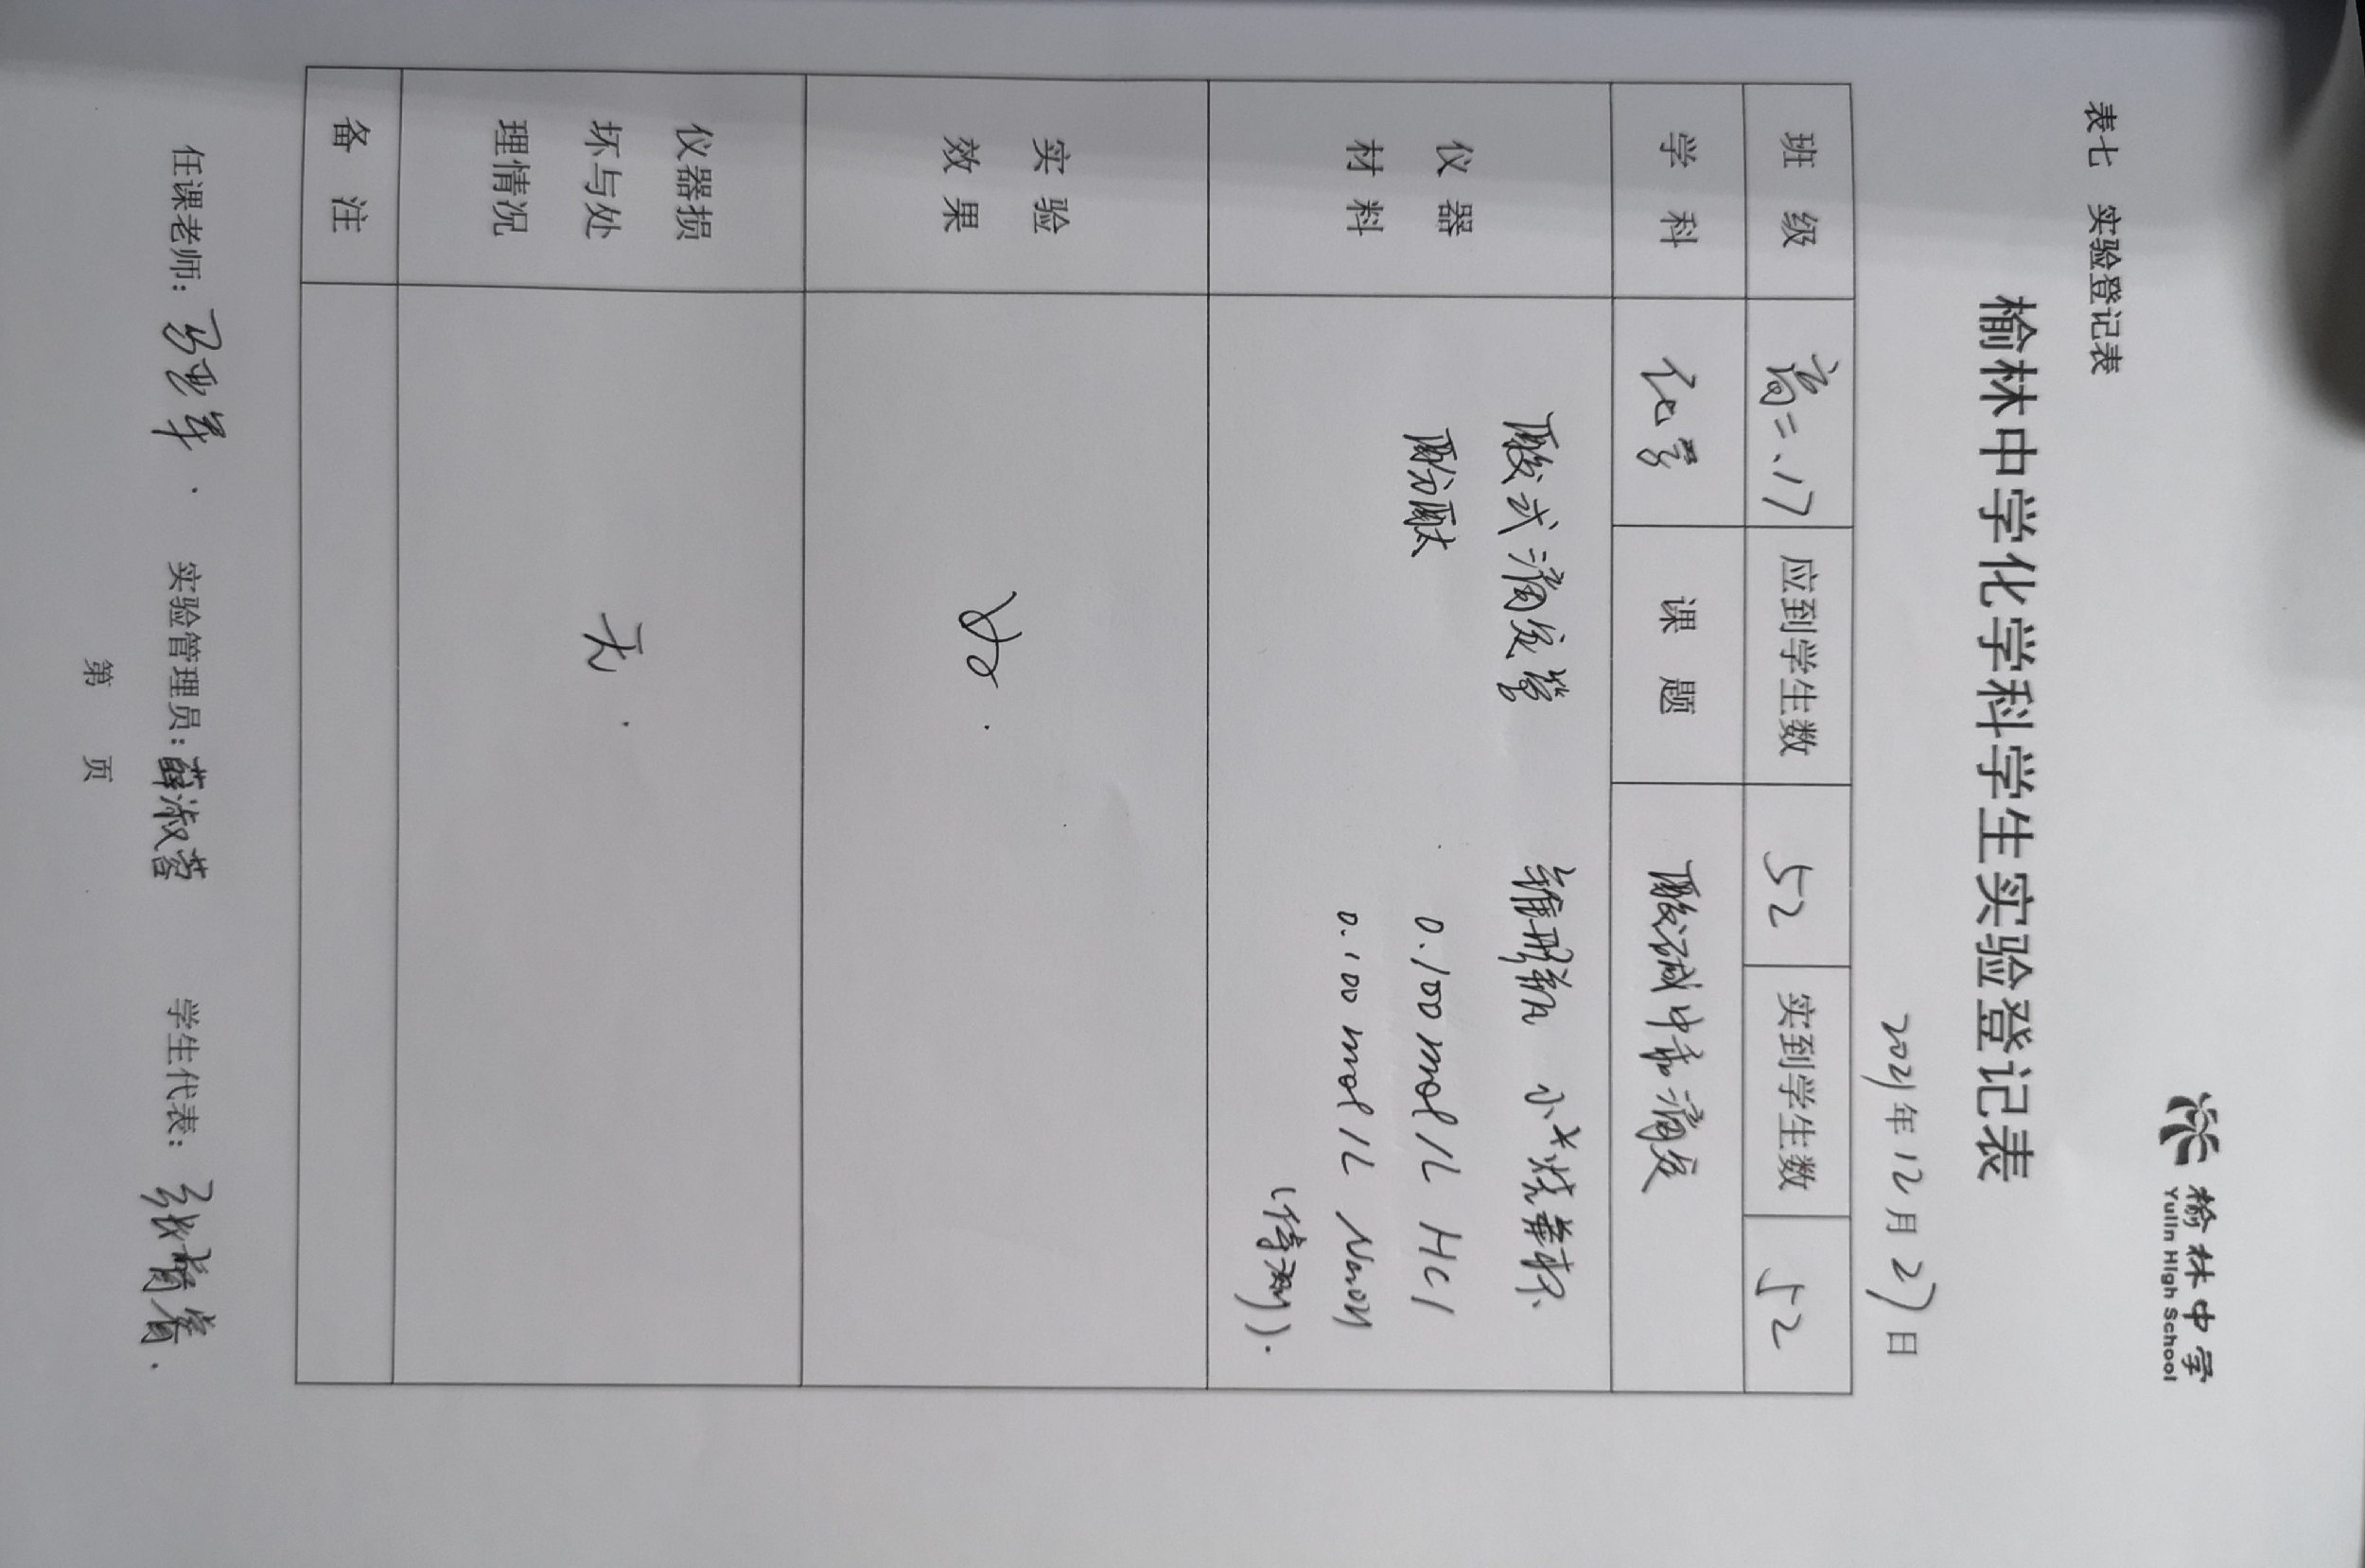 榆林中学
Yulin High School
表七 实验登记表
榆林中学化学科学生实验登记表
2021年12月27日
班级 高二.17 应到学生数 52 实到学生数 52
学科 化学 课题 酸碱中和滴定
仪器材料
酸式滴定管 锥形瓶 小烧杯
酚酞 0.100mol/L HCl
0.100mol/L NaOH
(待测).
实验效果 好.
仪器损坏与处理情况 无.
备注
任课老师: 实验管理员: 薛淑蓉 学生代表:
第 页